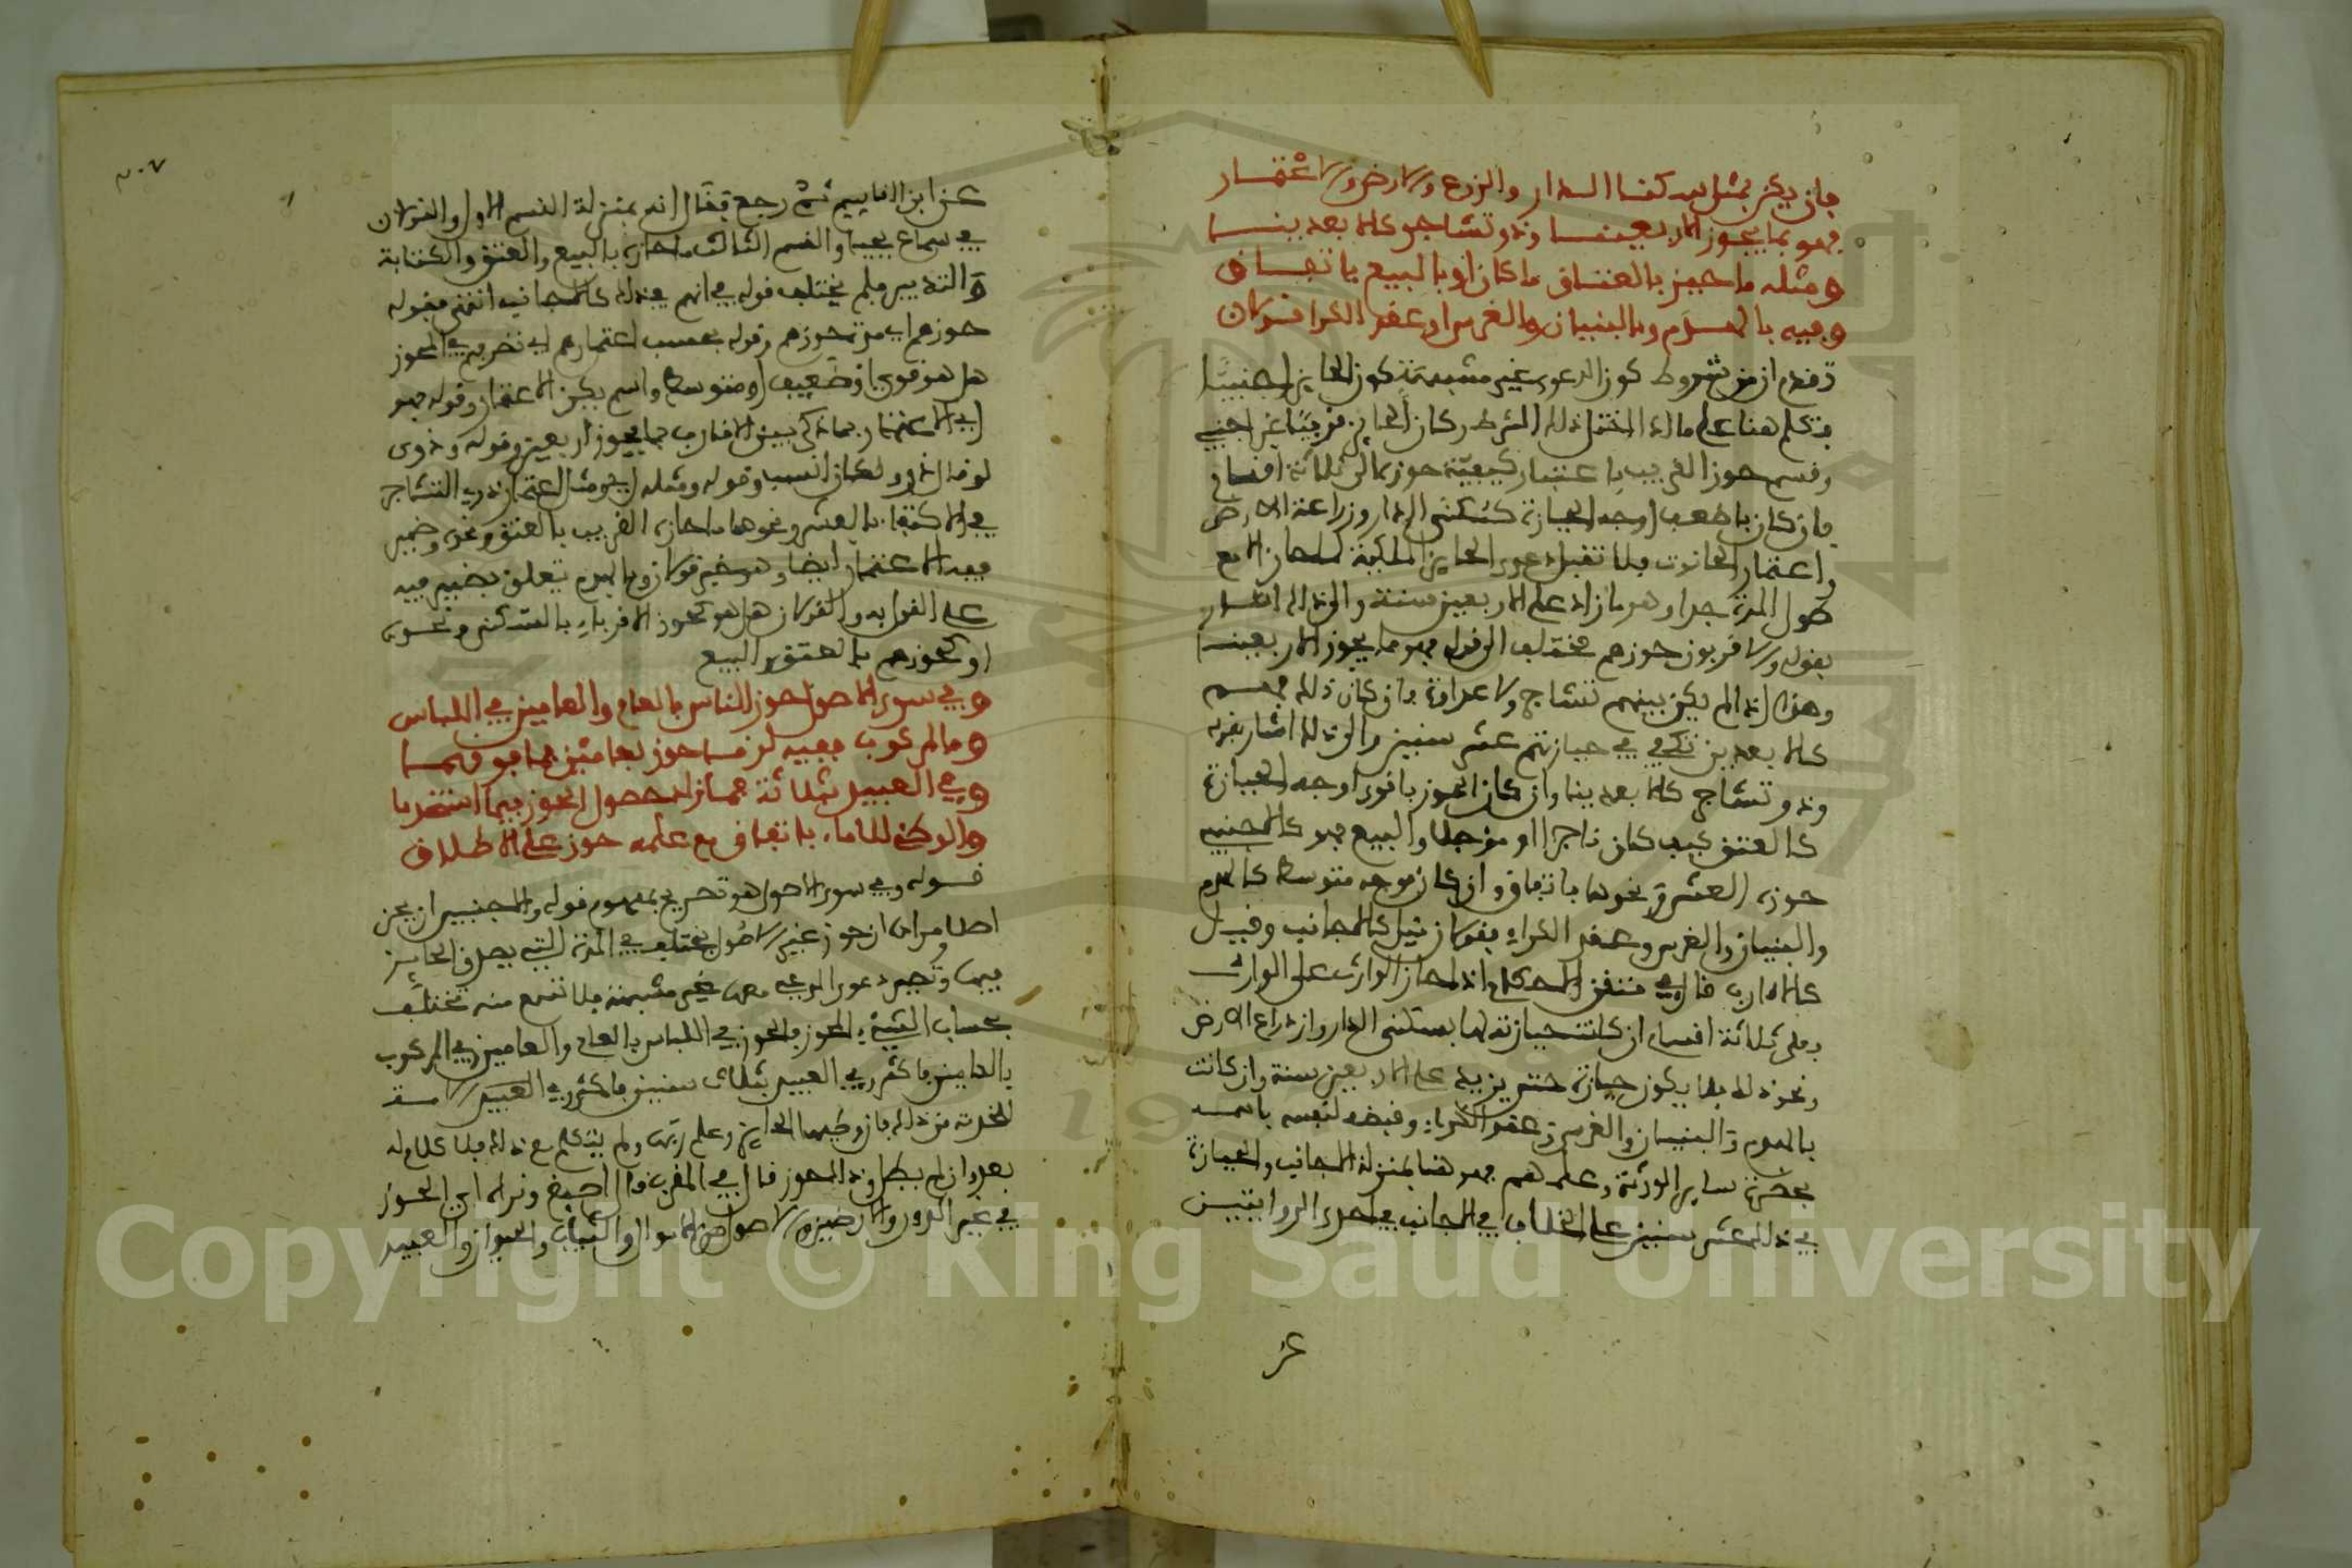 فإن يكن بمثل سكنى الدار والزرع للارض والاعتمار
فهو بما يجوز الاربعين وذو تشاجر كالابعدين
ومثله ما حيز بالعتاق ما كان او بالبيع باتفاق
وفيه بالهدم وبالبنيان والغرس او عقد الكرا قولان
تقدم ان من شروط كون الدعوى غير مشبهة كون الحايز اجنبيا
وتكلم هنا على ما اذا اختل ذلك الشرط وكان الحايز قريبا غير اجنبي
وقسم حوز القريب باعتبار كيفية حوزه الى ثلاثة اقسام
فان كان باضعف اوجه الحيازة كسكنى الدار وزراعة الارض
واعتمار الحانوت فلا تقبل دعوى الحايز الملكية لما حاز الا مع
طول المدة جدا وهو ما زاد على الاربعين سنة والى ذلك اشار
بقوله والاقربون حوزهم مختلف الى قوله فهو بما يجوز الاربعين
وهذا اذا لم يكن بينهم تشاجر ولا عداوة فان كان ذلك فهم
كالابعدين تكفي في حيازتهم عشر سنين والى ذلك اشار بقوله
وذو تشاجر كالابعدين وان كان الحوز باقوى اوجه الحيازة
كالعتق كيف كان ناجزا او مؤجلا والبيع فهو كالاجنبي
حوزه العشرة ونحوها باتفاق وان كان بوجه متوسط كالهدم
والبنيان والغرس وعقد الكراء فقولان قيل كالاجانب وقيل
كالاقارب قال في منتقى الاحكام اذا حاز الوارث على الوارث
فعلى ثلاثة اقسام ان كانت حيازته لها بسكنى الدار وازدراع الارض
ونحو ذلك فلا يكون حيازة حتى يزيد على الاربعين سنة وان كانت
بالهدم والبنيان والغرس وعقد الكراء وقبضه لنفسه باسمه
بحضرة ساير الورثة وعلمهم فهو هنا بمنزلة الاجانب والحيازة
في ذلك عشر سنين على اختلاف في الاجانب في احدى الروايتين
عن
٣٠٧
عن ابن القاسم ثم رجع فقال انه بمنزلة القسم الاول والقولان
في سماع يحيى والقسم الثالث ما حازه بالبيع والعتق والكتابة
والتدبير فلم يختلف قوله في انهم في ذلك كالاجانب انتهى فقوله
حوزهم اي مدة حوزهم وقوله بحسب اعتمارهم اي تصرفهم في المحوز
هل هو قوي او ضعيف او متوسط واسم يكن الاعتمار وقوله فهو
اي الاعتمار بما ذكر بين الاقارب بما يجوز الاربعين وقوله وذوى
لو قال ذوو لكان انسب وقوله ومثله اي ومثل اعتمار ذوي التشاجر
في الاكتفاء بالعشر ونحوها ما حازه القريب بالعتق ونحوه وضمير
فيه للاعتمار ايضا وهو خبر قولان وبالهدم يتعلق بضمير فيه
على القول به والقولان هل هو كحوز الاقرباء بالسكنى ونحوه
او كحوزهم بالعتق والبيع
وفي سوى الاصول حوز الناس بالعام والعامين في اللباس
وما لمركوب ففيه لزما حوز بعامين فما فوقهما
وفي العبيد بثلاثة فما زاد حصول الحوز فيما استخدما
والوطء للاماء باتفاق مع علمه حوز على الاطلاق
قوله وفي سوى الاصول هو تصريح بمفهوم قوله والاجنبي ان يحز
اصلا ومراده ان حوز غير الاصول يختلف في المدة التي يصدق الحايز
فيها وتصير دعوى المدعي معها غير مشبهة فلا تسمع منه تختلف
بحساب الشيء المحوز فالحوز في اللباس بالعام والعامين وفي المركوب
بالعامين فاكثر وفي العبيد بثلاث سنين فاكثر وفي العبيد والامة
للخدمة من ذلك فان وطئها الحايز وعلم ربها ولم يتكلم مع ذلك فلا كلام له
بعد وان لم يطل وذا المحوز قال في المقرب قال اصبغ ونرى ان الحوز
في غير الدور والارضين والاصول من الاموال والثياب والحيوان والعبيد